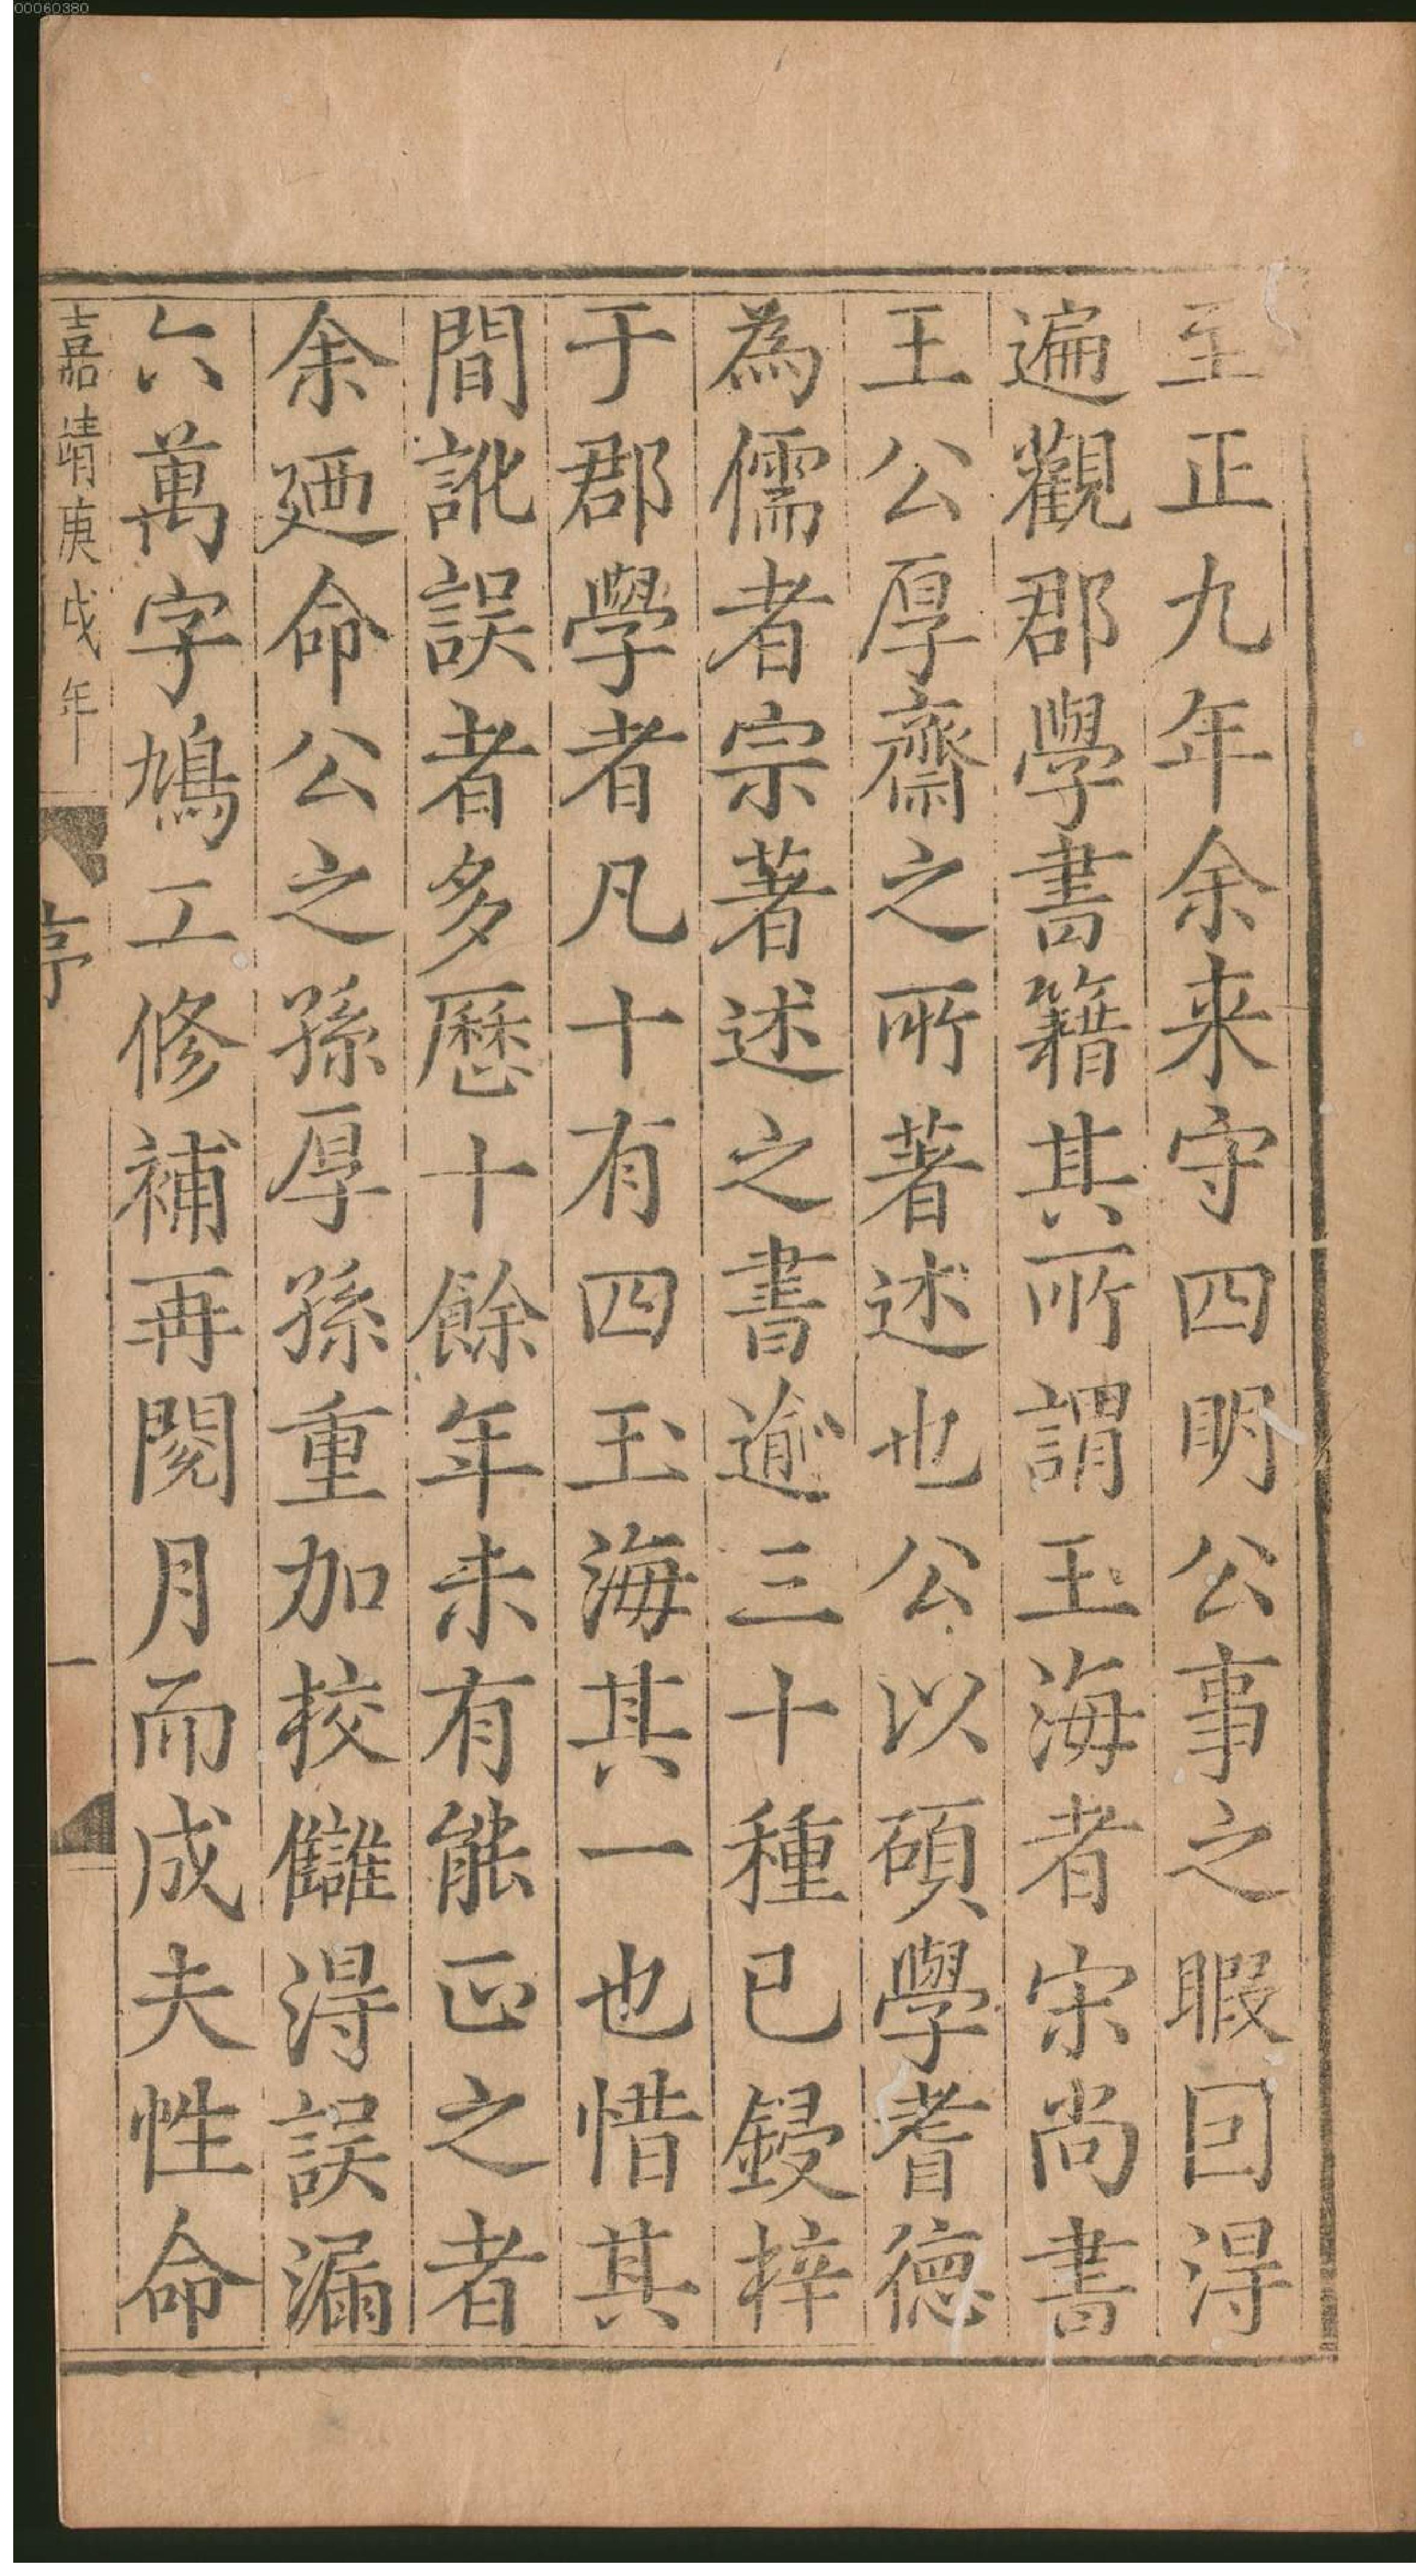 至正九年余来守四明公事之暇囙淂
遍觀郡學書籍其所謂玉海者宋尚書
王公厚齋之所著述也公以碩學耆德
為儒者宗著述之書逾三十種已鋟梓
于郡學者凡十有四玉海其一也惜其
間訛誤者多歷十餘年未有能正之者
余廼命公之孫厚孫重加校讎淂誤漏
六萬字鳩工修補再閱月而成夫性命
嘉靖庚戌年
序
一
00060380